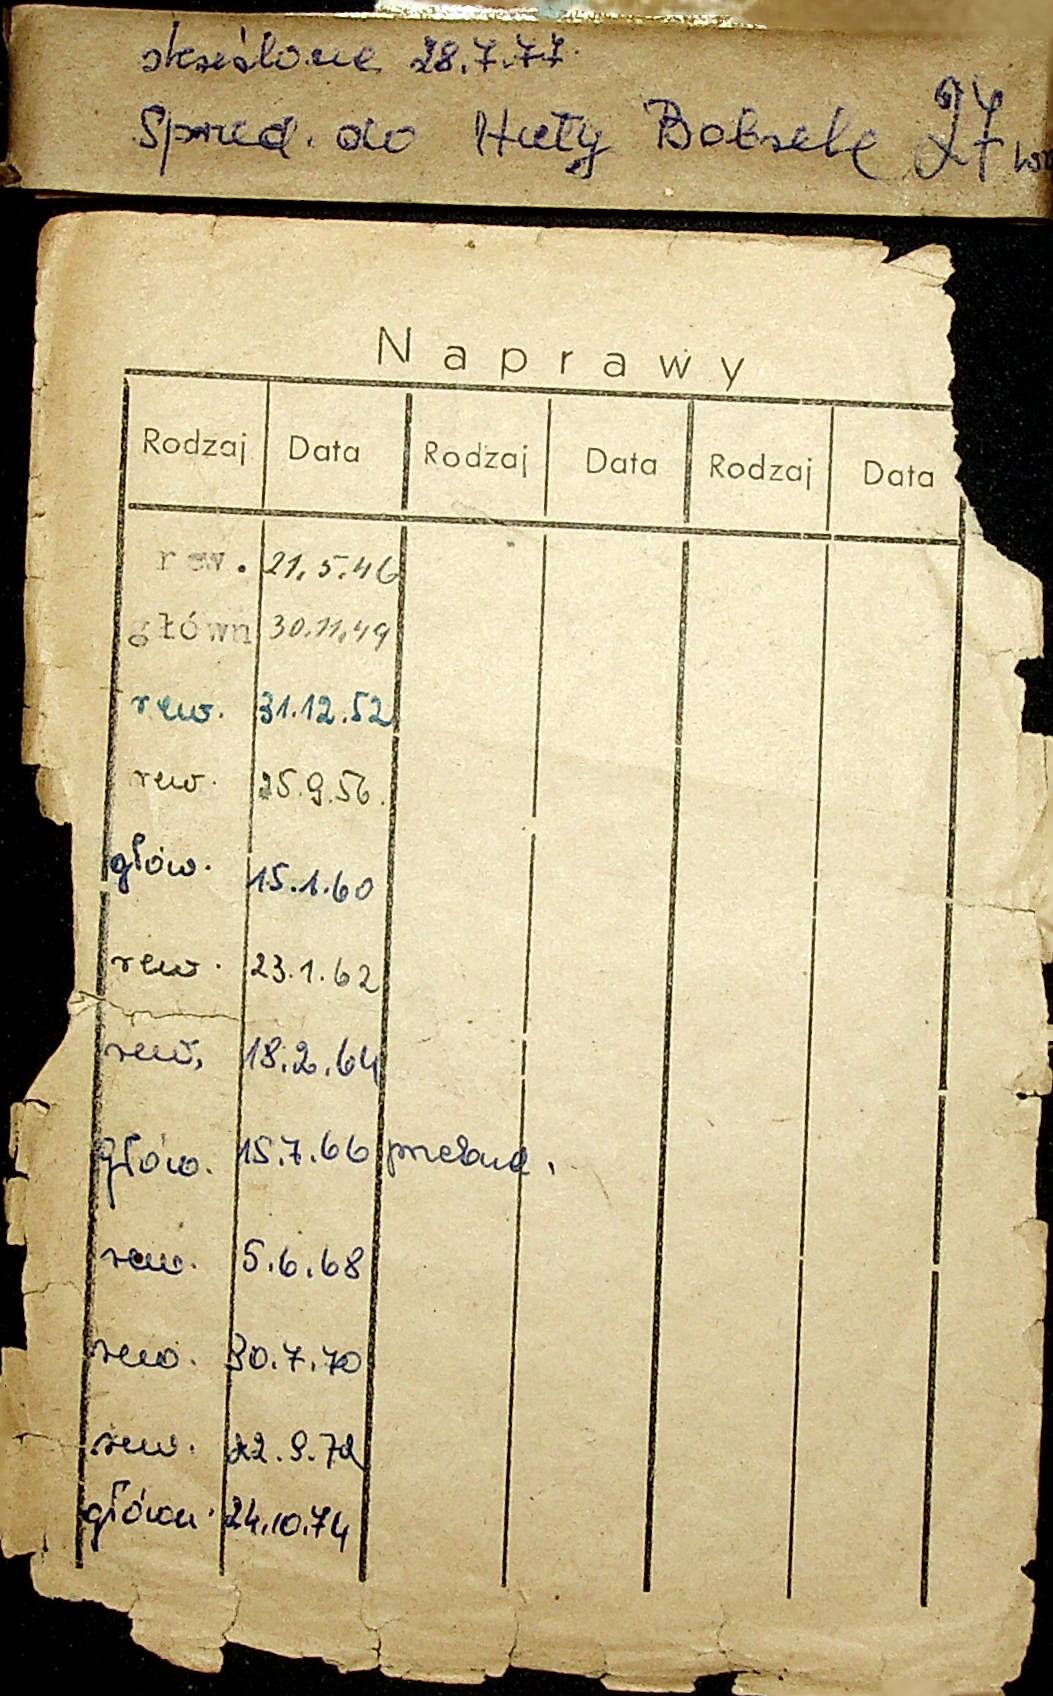 skreślone 28.7.77.
Sprzed. do Huty Bobrek 27
Naprawy
Rodzaj Data Rodzaj Data Rodzaj Data
rew. 21.5.46
główn 30.11.49
rew. 31.12.52
rew. 25.9.56.
głów. 15.1.60
rew. 23.1.62
rew. 18.2.64
głów. 15.7.66 przebud.
rew. 5.6.68
rew. 30.7.70
rew. 22.9.72
główn. 24.10.74